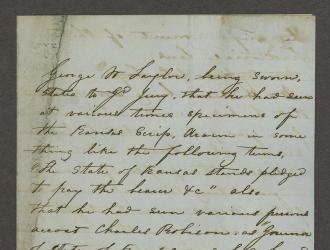 George W Taylor, being sworn,
states to Gd Jury, that he had seen
at various times specimens of
the Kansas Scrip, drawn in some
thing like the following terms,
"The State of Kansas stands pledged
to pay the bearer &c" also
that he had seen various persons
accost Charles Robinson as Governor
of State of